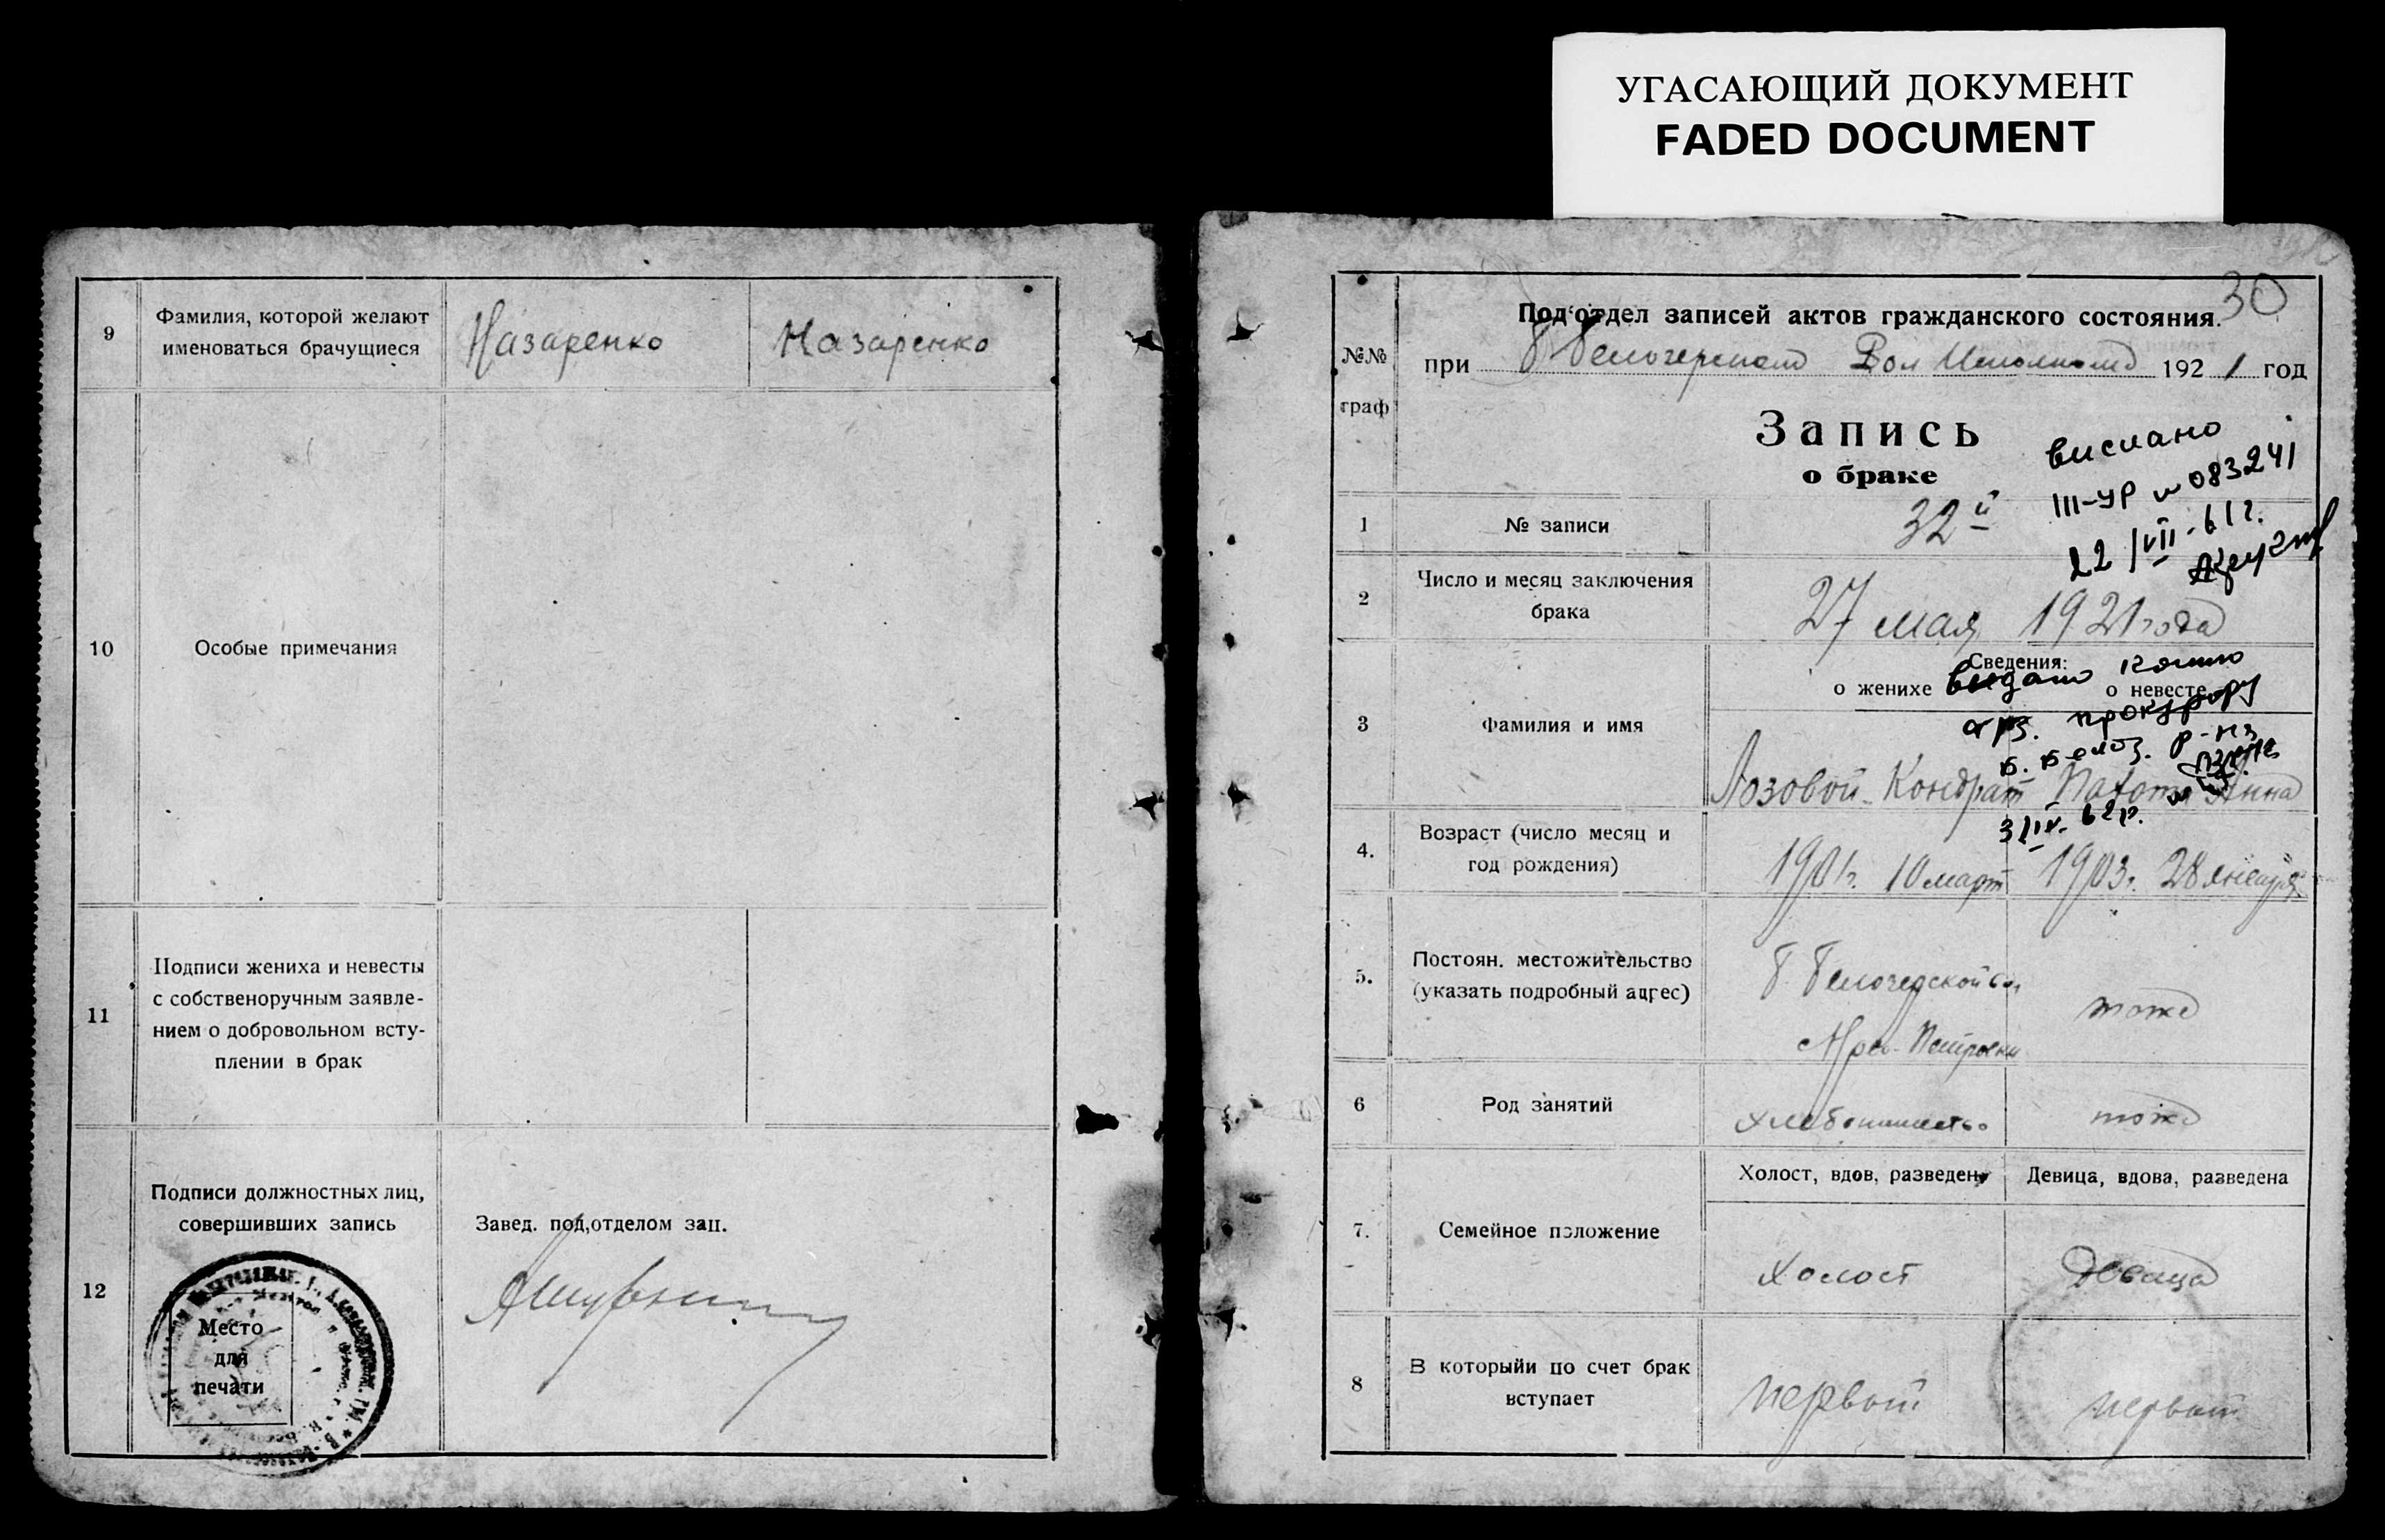 УГАСАЮЩИЙ ДОКУМЕНТ
FADED DOCUMENT
9
Фамилия, которой желают
именоваться брачущиеся
Назаренко
Назаренко
10
Особые примечания
11
Подписи жениха и невесты
с собственоручным заявле-
нием о добровольном всту-
плении в брак
12
Подписи должностных лиц,
совершивших запись
Завед. под,отделом зап.
Место
для
печати
30
№№
граф
Под'отдел записей актов гражданского состояния.
при 1921 год
Запись
о браке
висиано
III-УР № 083241
22/VII-61г.
1
№ записи
32й
2
Число и месяц заключения
брака
27 мая 1921 года
Сведения:
о женихе
о невесте
видано копию
прокурору
3/IV. 62р.
3
Фамилия и имя
Лозовой Кондрат
Анна
4.
Возраст (число месяц и
год рождения)
1901г. 10 март
1903г. 28 января
5.
Постоян. местожительство
(указать подробный адрес)
тоже
6
Род занятий
хлебопашество
тоже
7.
Семейное положение
Холост, вдов, разведен
Девица, вдова, разведена
холост
девица
8
В которыйи по счет брак
вступает
первый
первый